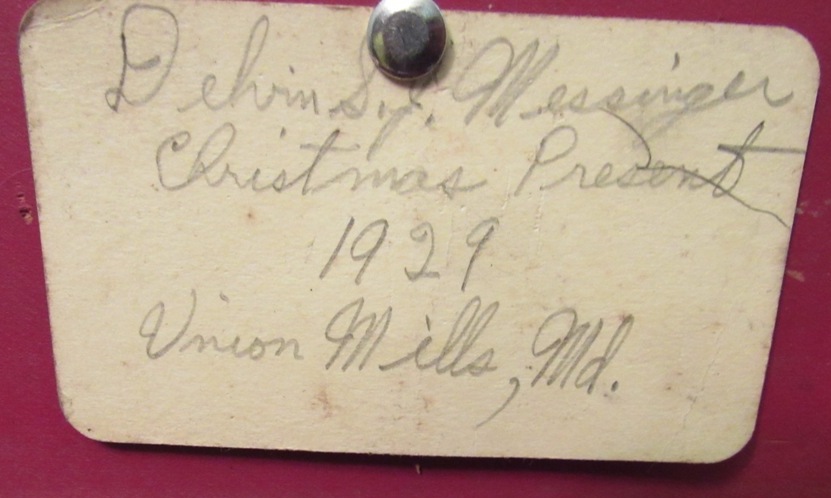 Delvin S.J. Messinger
Christmas Present
1929
Union Mills, Md.